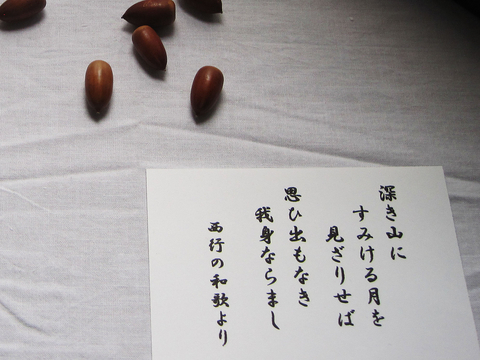 深き山に
すみける月を
見ざりせば
思ひ出もなき
我身ならまし
西行の和歌より